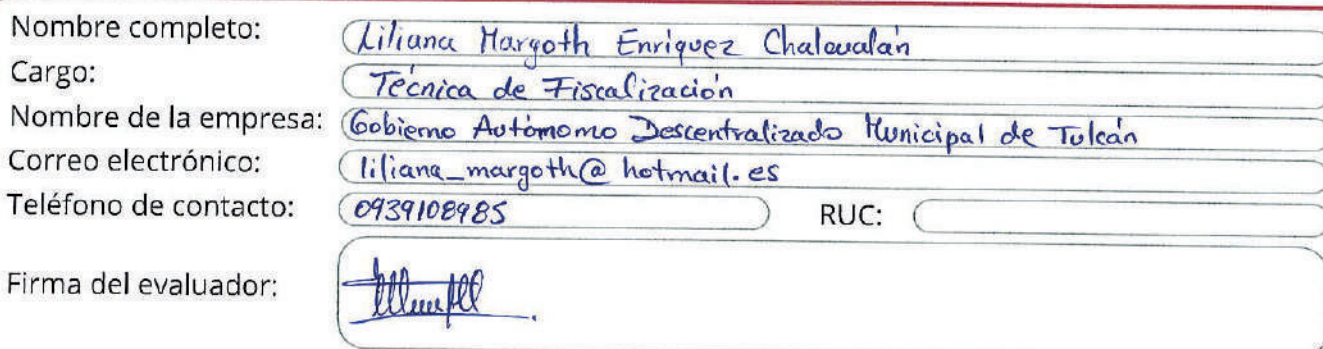 Nombre completo: Liliana Margoth Enriquez Chalcualán
Cargo: Técnica de Fiscalización
Nombre de la empresa: Gobierno Autómomo Descentralizado Municipal de Tulcán
Correo electrónico: liliana_margoth@hotmail.es
Teléfono de contacto: 0939108985 RUC:
Firma del evaluador: